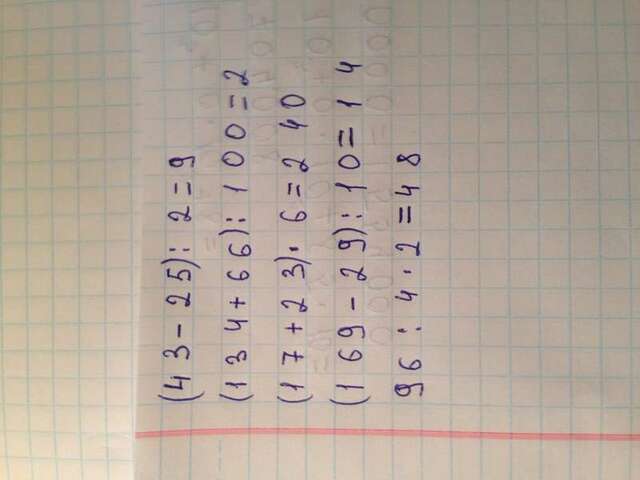 (43-25):2=9
(134+66):100=2
(17+23)·6=240
(169-29):10=14
96:4·2=48